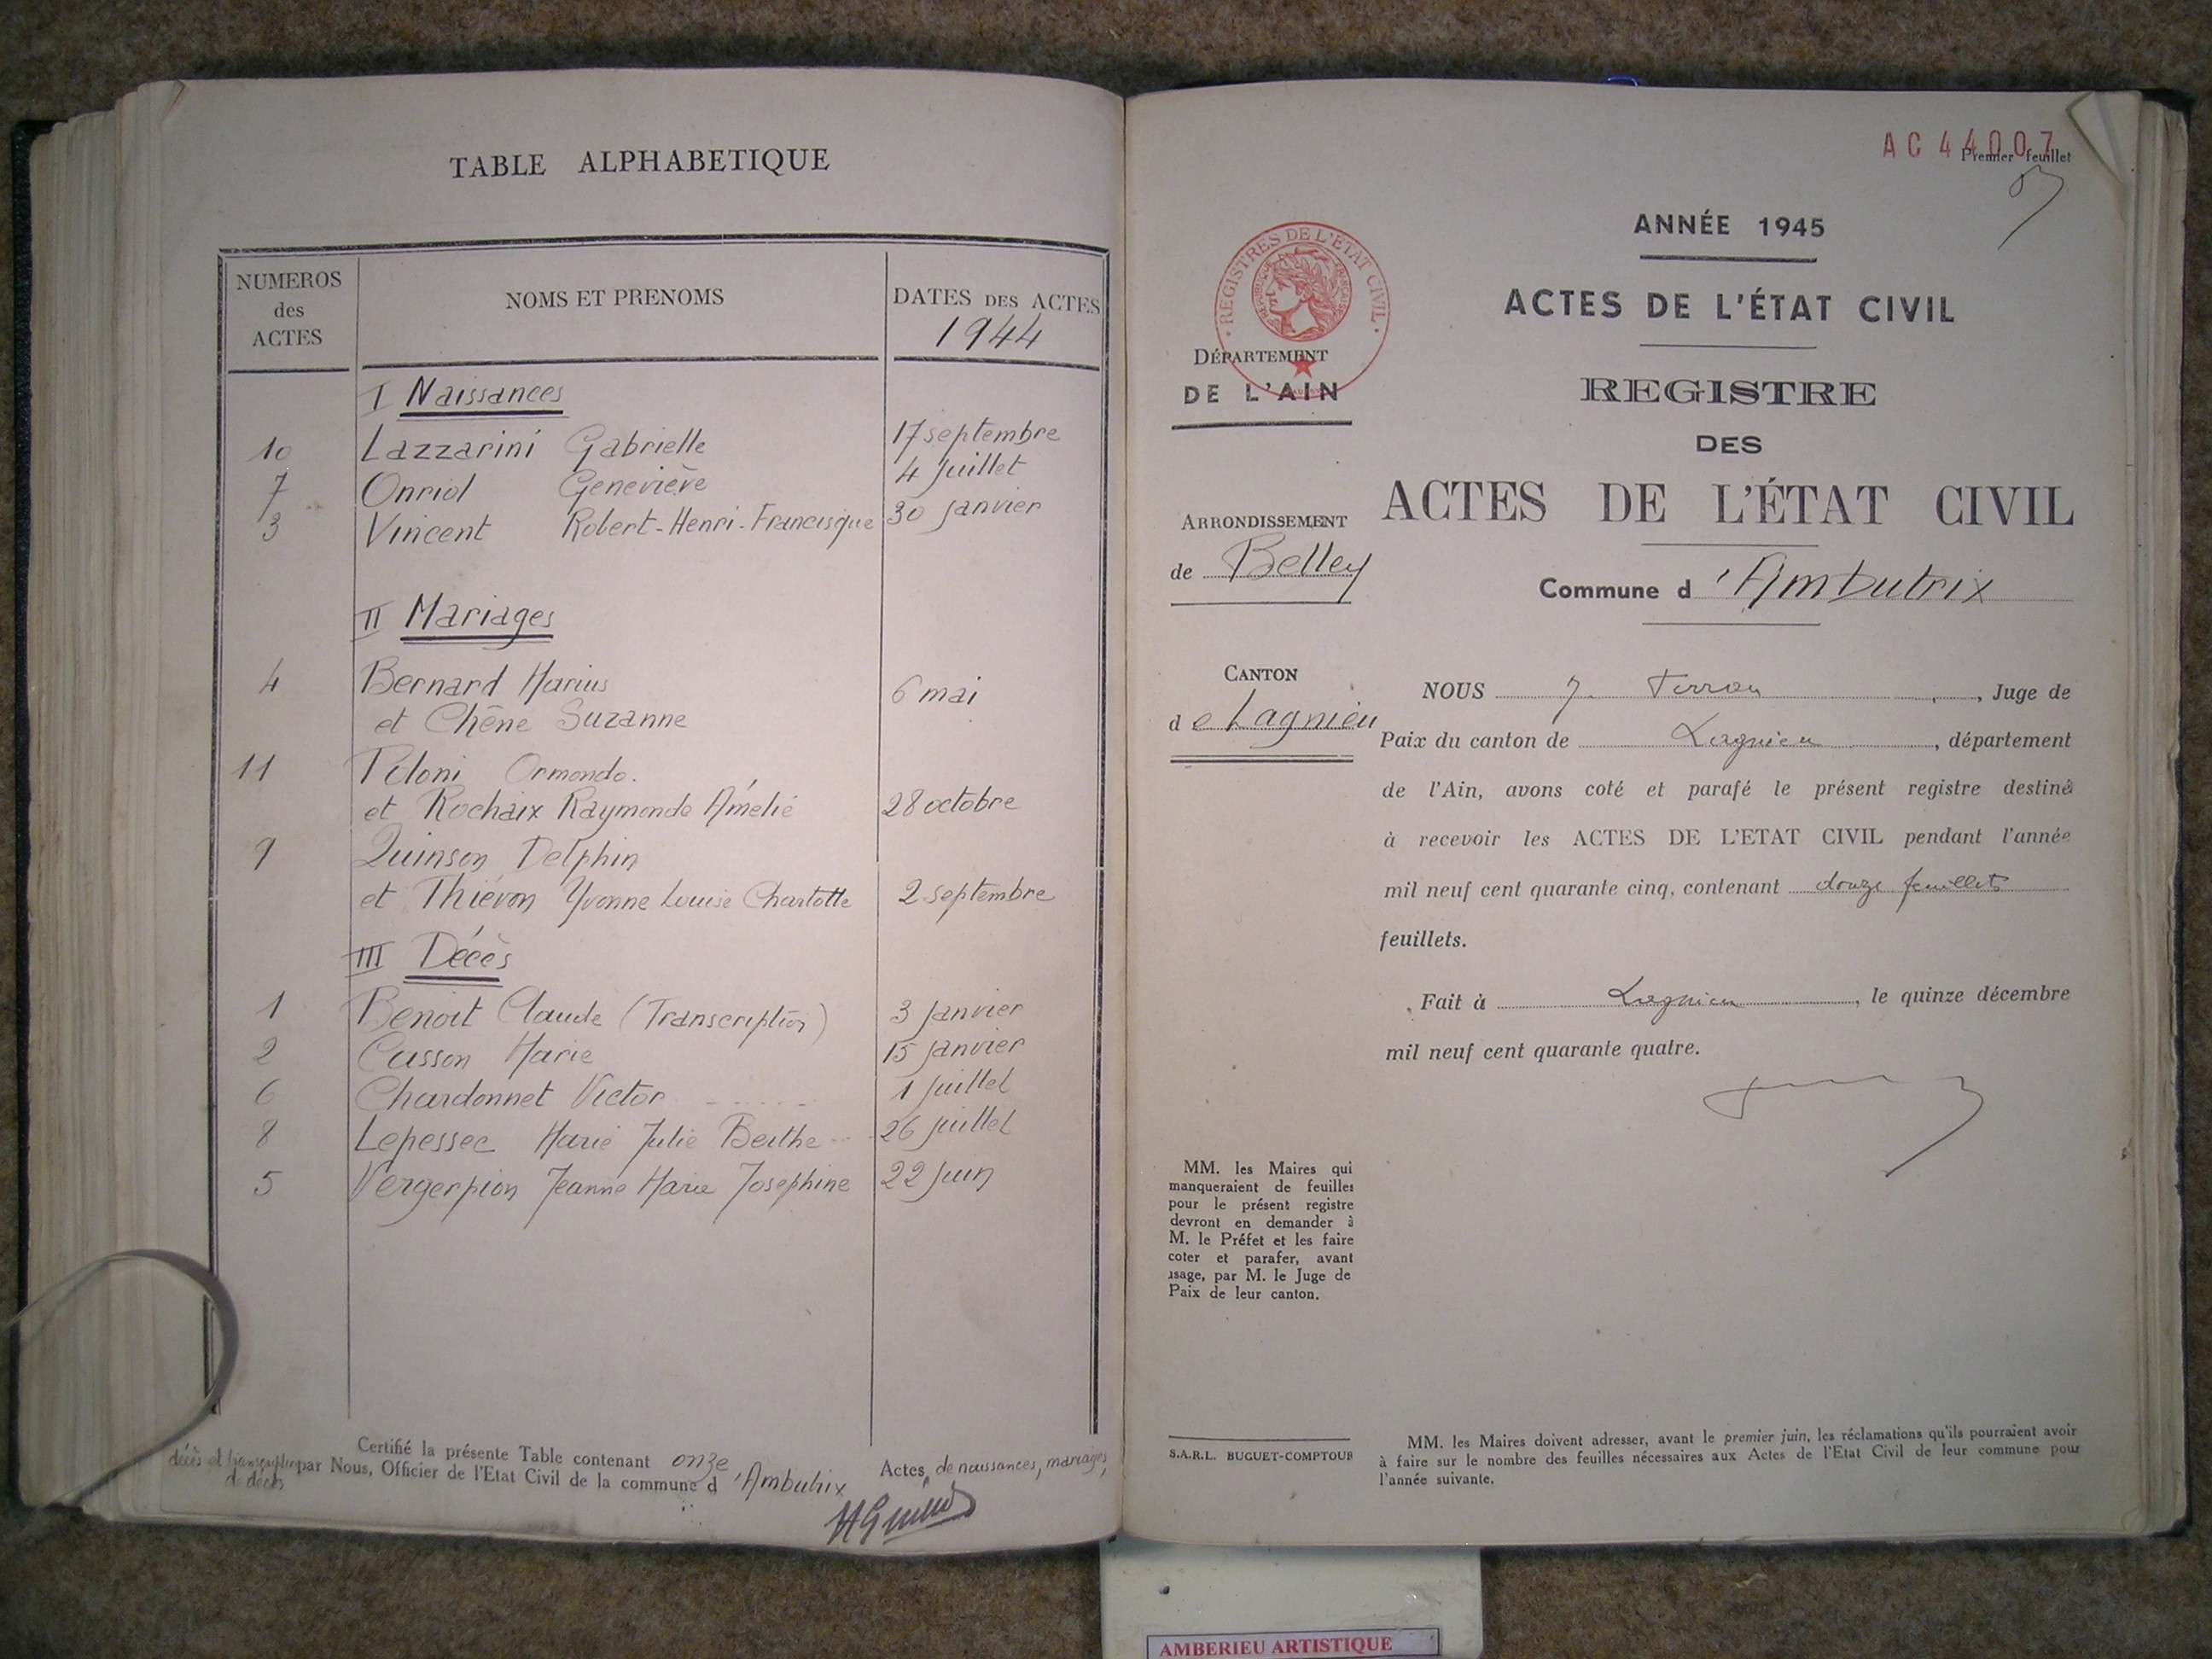 TABLE ALPHABETIQUE
NUMEROS des ACTES
NOMS ET PRENOMS
DATES DES ACTES
1944
I Naissances
10 Lazzarini Gabrielle 17 septembre
7 Onriol Geneviève 4 Juillet
3 Vincent Robert-Henri-Francisque 30 Janvier
II Mariages
4 Bernard Marius
et Chêne Suzanne 6 mai
11 Ormondo.
et Rochaix Raymonde Amélie 28 octobre
9 Quinson Delphin
et Thiévon Yvonne Louise Charlotte 2 septembre
III Décès
1 Benoit Claude (Transcription) 3 Janvier
2 Casson Marie 15 Janvier
6 Chardonnet Victor 1 Juillet
8 Lepessec Marie Julie Berthe 26 Juillet
5 Vergerpion Jeanne Marie Josephine 22 Juin
Certifié la présente Table contenant onze Actes de naissances, mariages,
décès et transcription de décès par Nous, Officier de l'Etat Civil de la commune d 'Ambutrix
AC 44007
Premier feuillet
ANNÉE 1945
ACTES DE L'ÉTAT CIVIL
REGISTRES DE L'ÉTAT CIVIL
REPUBLIQUE FRANÇAISE
DÉPARTEMENT
DE L'AIN
REGISTRE
DES
ACTES DE L'ÉTAT CIVIL
ARRONDISSEMENT
de Belley
Commune d 'Ambutrix
CANTON
de Lagnieu
NOUS , Juge de
Paix du canton de Lagnieu, département
de l'Ain, avons coté et parafé le présent registre destiné
à recevoir les ACTES DE L'ETAT CIVIL pendant l'année
mil neuf cent quarante cinq, contenant douze feuillets
feuillets.
Fait à Lagnieu, le quinze décembre
mil neuf cent quarante quatre.
MM. les Maires qui
manqueraient de feuilles
pour le présent registre
devront en demander à
M. le Préfet et les faire
coter et parafer, avant
usage, par M. le Juge de
Paix de leur canton.
S.A.R.L. BUGUET-COMPTOUR
MM. les Maires doivent adresser, avant le premier juin, les réclamations qu'ils pourraient avoir
à faire sur le nombre des feuilles nécessaires aux Actes de l'Etat Civil de leur commune pour
l'année suivante.
AMBERIEU ARTISTIQUE